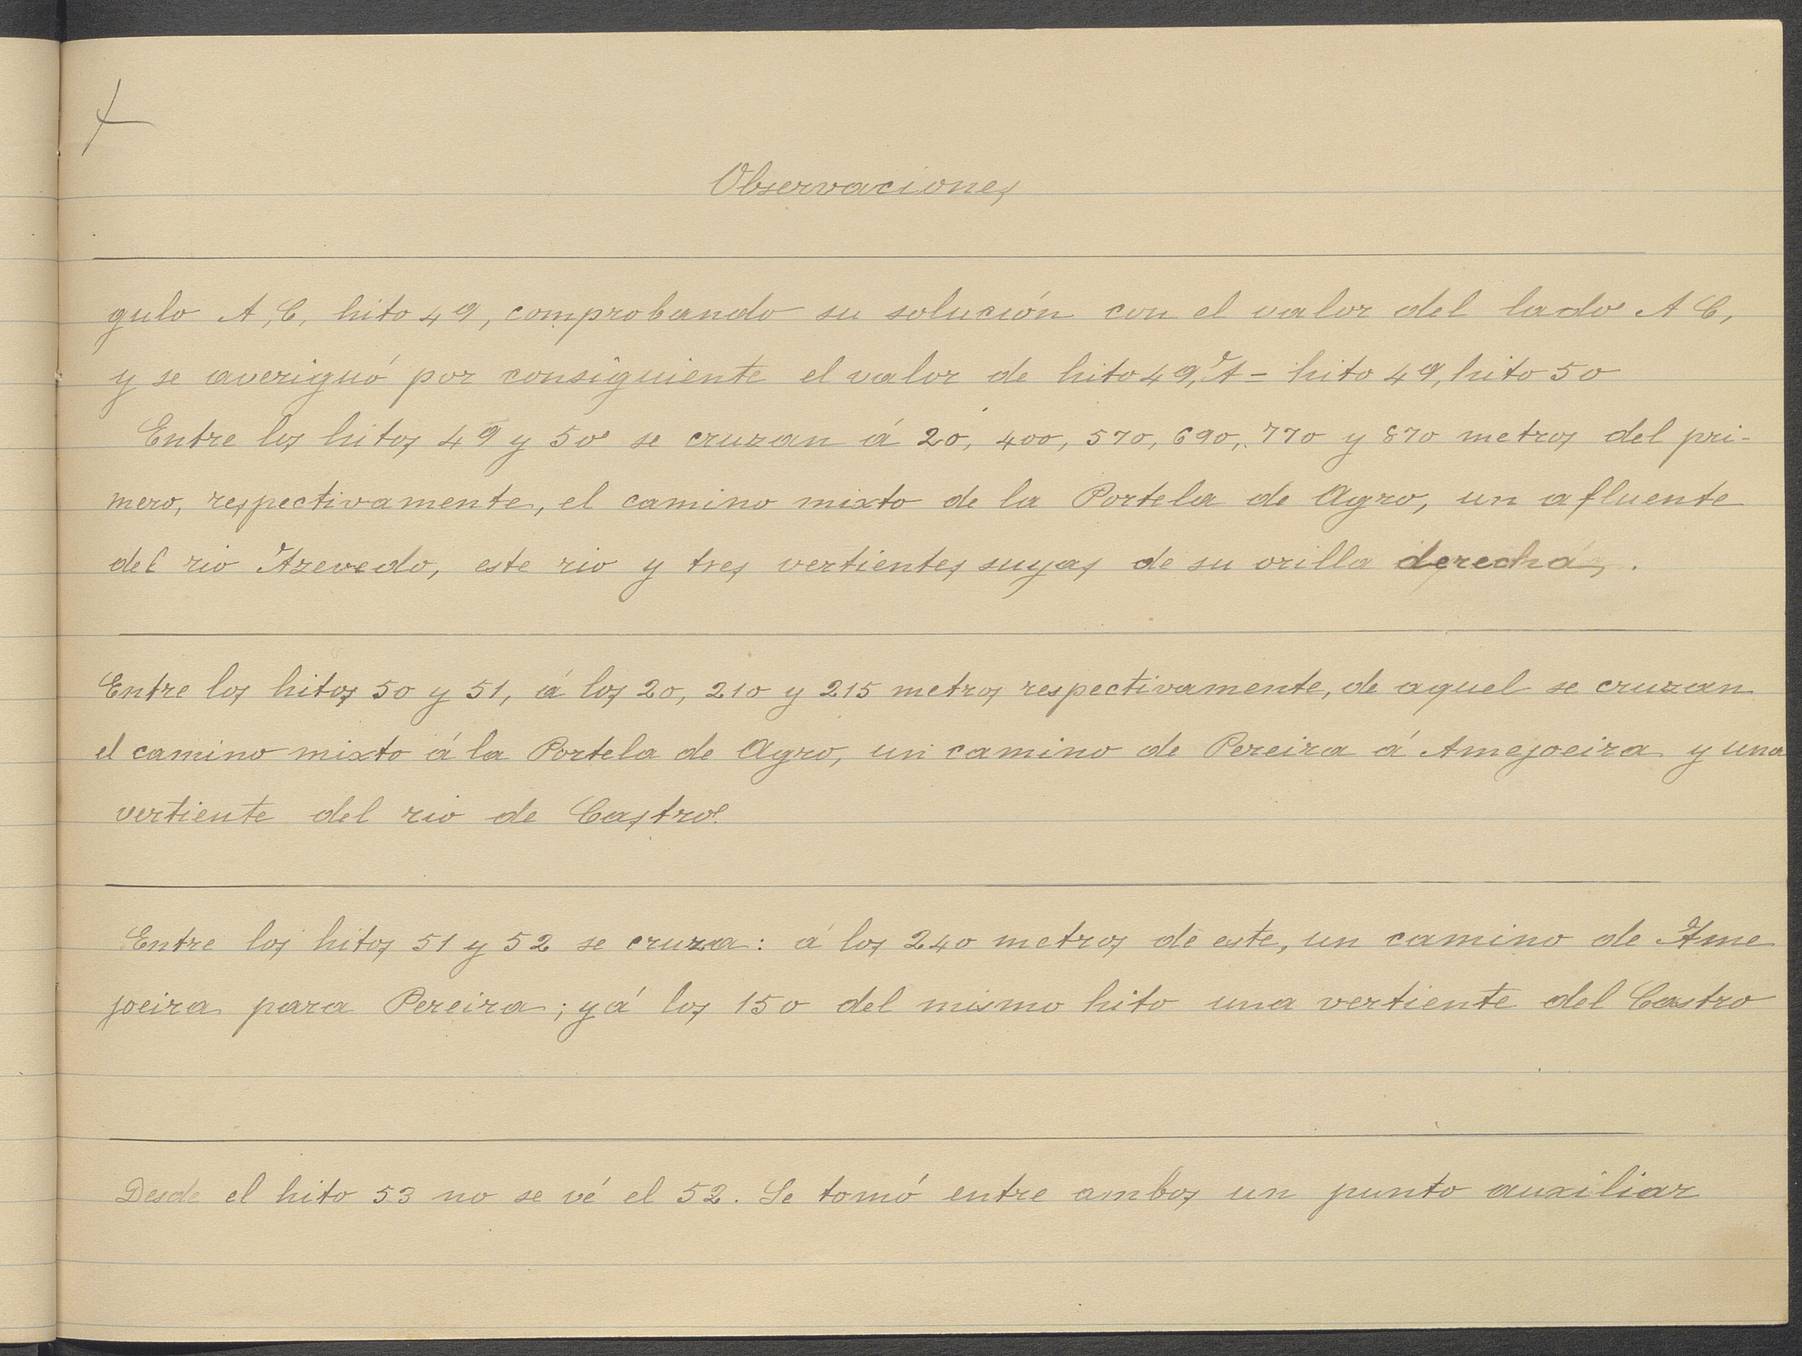 Observaciones
gulo A, C, hito 49, comprobando su solución con el valor del lado A C,
y se averiguó por consiguiente el valor de hito 49, A = hito 49, hito 50
Entre los hitos 49 y 50 se cruzan á 20, 400, 570, 690, 770 y 870 metros del pri-
mero, respectivamente, el camino mixto de la Portela de Agro, un afluente
del rio Azevedo, este rio y tres vertientes suyas de su orilla derecha.
Entre los hitos 50 y 51, á los 20, 210 y 215 metros respectivamente, de aquel se cruzan
el camino mixto á la Portela de Agro, un camino de Pereira á Amejoeira y una
vertiente del rio de Castro.
Entre los hitos 51 y 52 se cruza: á los 240 metros de este, un camino de Ame
joeira para Pereira; y á los 150 del mismo hito una vertiente del Castro
Desde el hito 53 no se vé el 52. Se tomó entre ambos un punto auxiliar